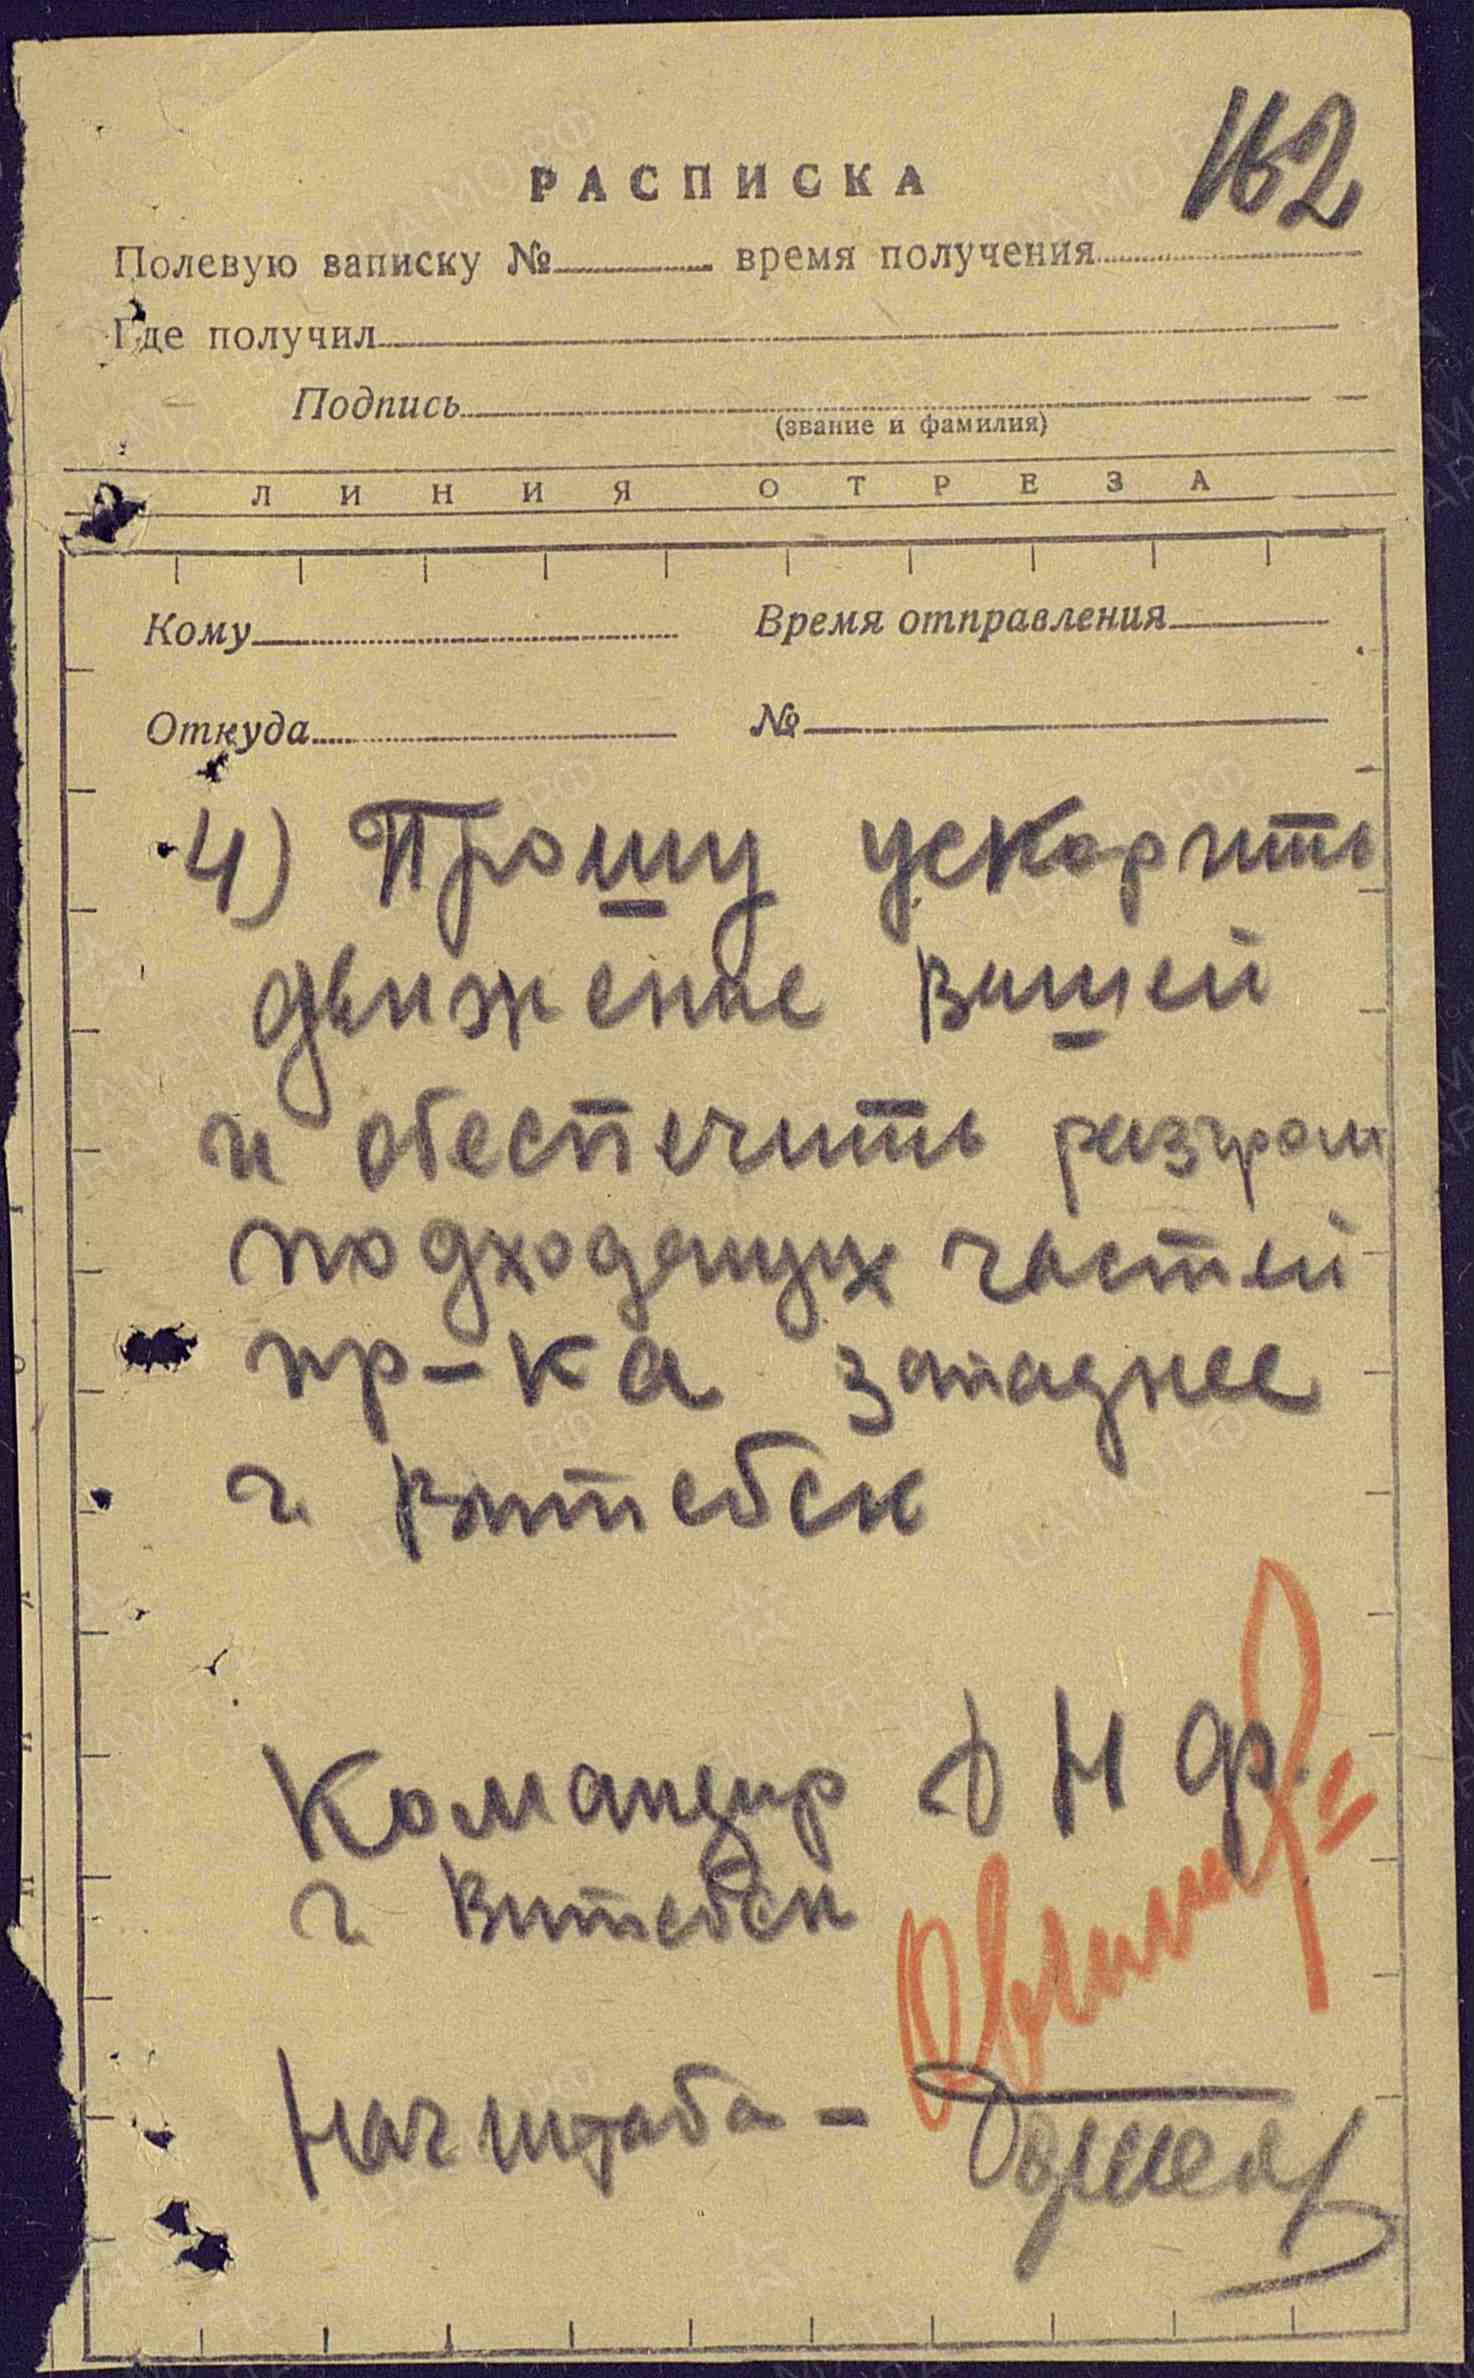 162
РАСПИСКА
Полевую записку № время получения
Где получил
Подпись
(звание и фамилия)
ЛИНИЯ ОТРЕЗА
Кому Время отправления
Откуда №
4) Прошу ускорить
движение Вашей
и обеспечить разгром
подходящих частей
пр-ка западнее
г. Витебск
Командир ДНФ.
г. Витебск
Нач штаба -